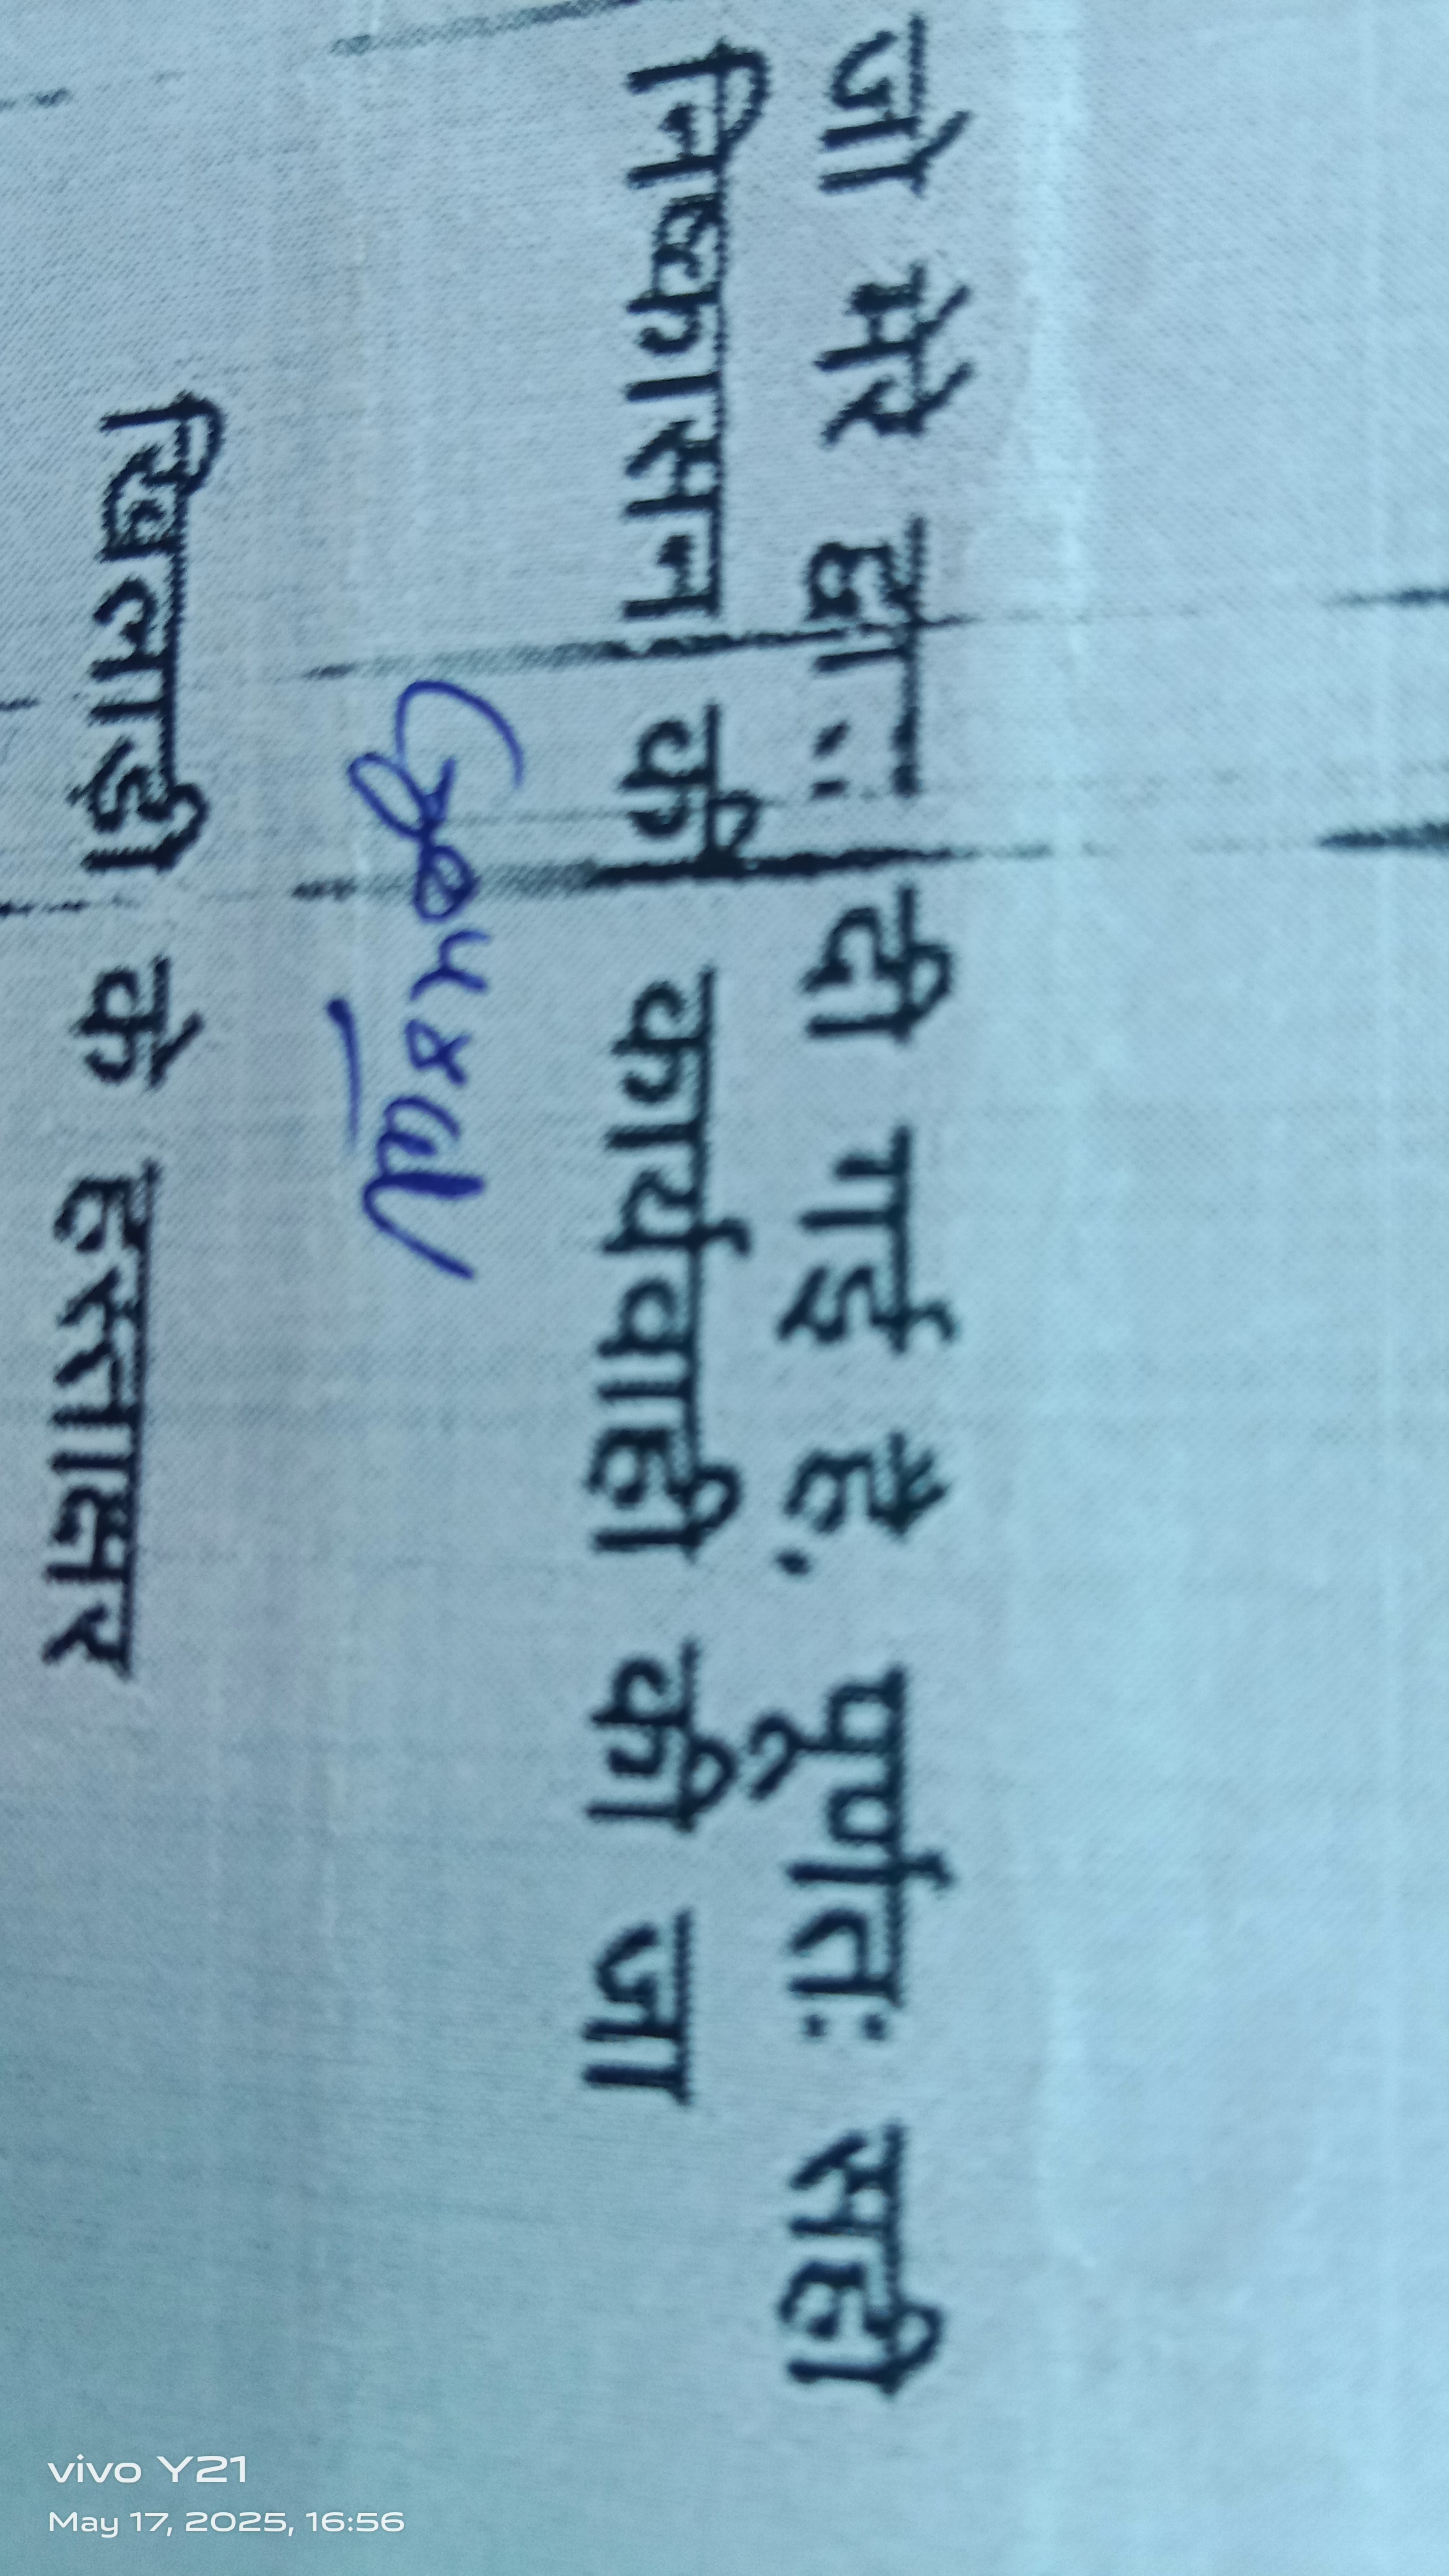 जो मेरे द्वारा दी गई है, पूर्णतः सही
निष्कासन की कार्यवाही की जा
खिलाड़ी के हस्ताक्षर
vivo Y21
May 17, 2025, 16:56